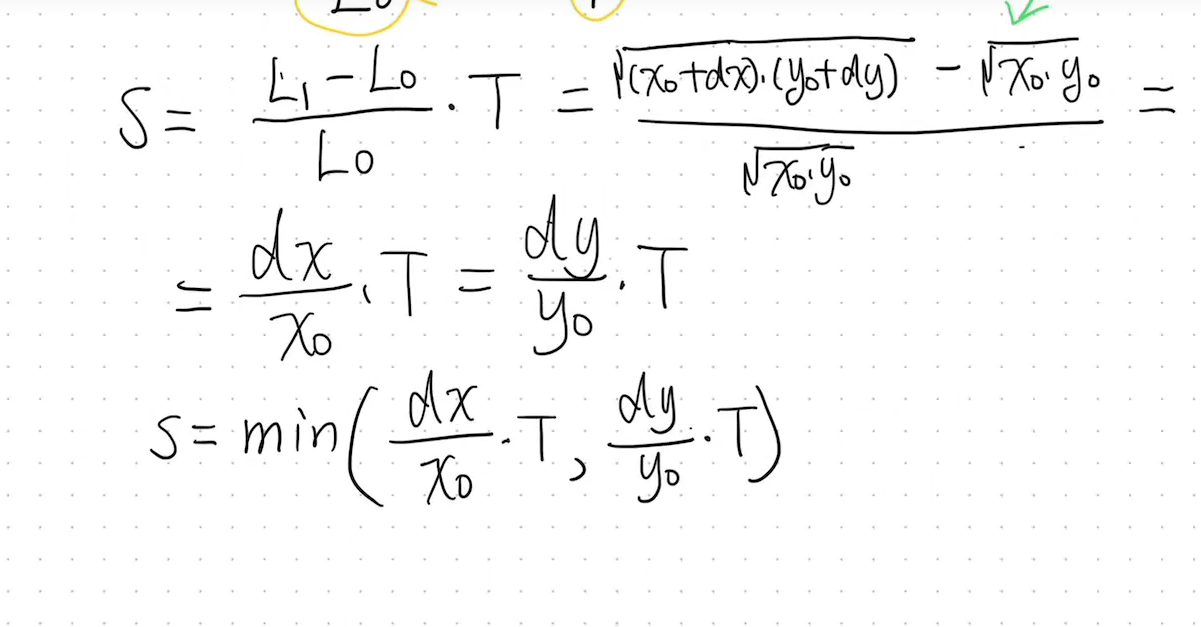 S = (L₁ - L₀)/L₀ · T = (√((x₀+dx)·(y₀+dy)) - √(x₀·y₀))/√(x₀·y₀) =
= dx/x₀ · T = dy/y₀ · T
S = min(dx/x₀ · T, dy/y₀ · T)